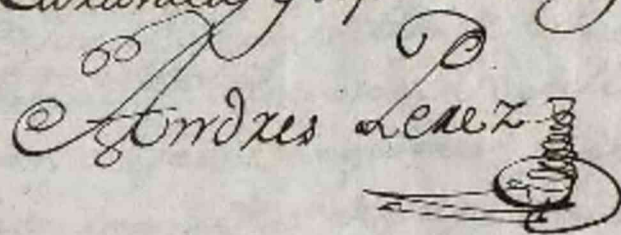 Andres Perez